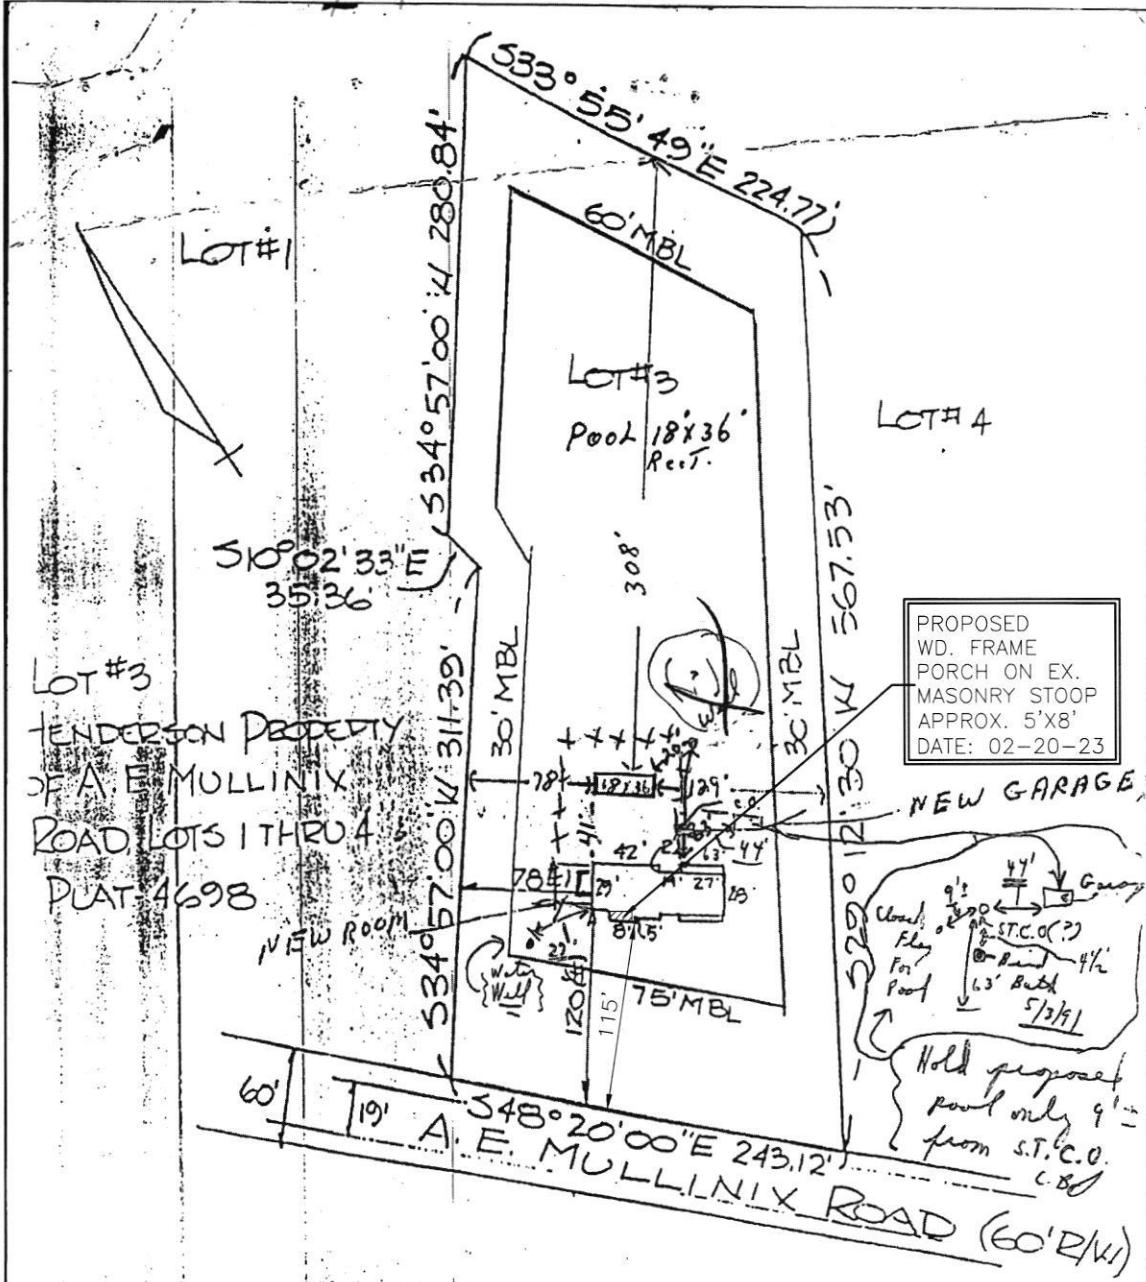 S33° 55' 49"E 224.77'
S34° 57' 00" W 280.84'
LOT #1
60' MBL
LOT #3
POOL 18'X36'
RecT.
LOT # 4
308'
S10° 02' 33" E
35.36'
30' MBL
30' MBL
S29° 12' 30 W 567.53'
PROPOSED
WD. FRAME
PORCH ON EX.
MASONRY STOOP
APPROX. 5'X8'
DATE: 02-20-23
LOT #3
HENDERSON PROPERTY
OF A.E. MULLINIX
ROAD LOTS 1 THRU 4
PLAT 4698
S34° 57' 00" W 311.39'
78'
18X36
129'
NEW GARAGE
C.O.
41'
42'
63'
44'
78'±
29'
A'
27'
28'
A
8'
5'
NEW ROOM
22'
Water
Well
120'±
115'
75' MBL
44'
Garage
9'±
S.T.C.O(?)
Closed
Flag
For
Pool
Bird
Bath
4 1/2
63'
5/3/91
Hold proposed
pool only 9'±
from S.T.C.O.
60'
19'
S48° 20' 00" E 243.12'
A. E. MULLINIX ROAD (60' R/W)